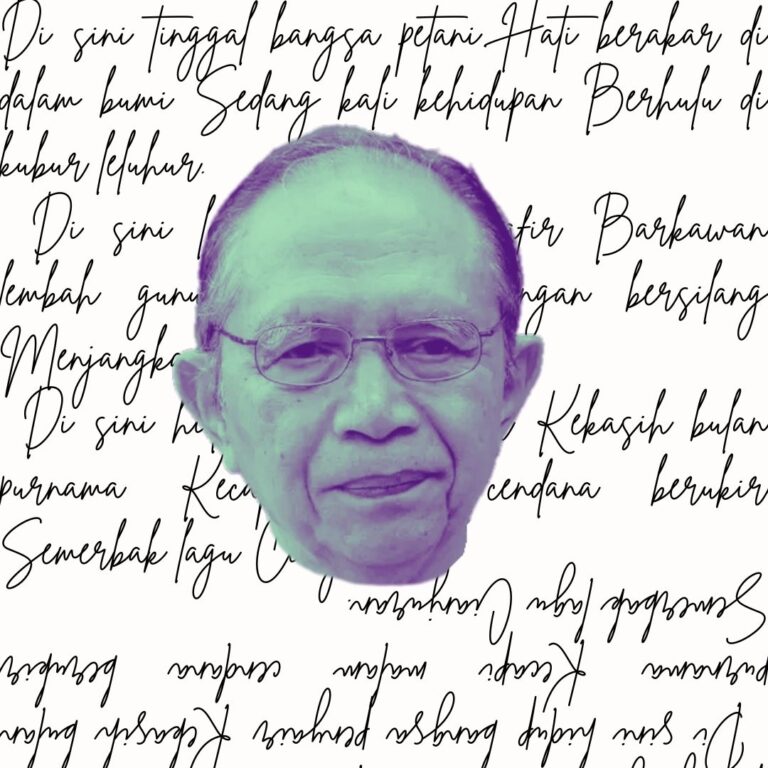 Di sini tinggal bangsa petani.Hati berakar di
dalam bumi Sedang kali kehidupan Berhulu di
kubur leluhur.
Di sini Barkawan
lembah bersilang
Di sini Kekasih bulan
purnama cendana berukir
Semerbak lagu
Semerbak lagu Cianjuran.
purnama Kecapi malam cendana berukir
Di sini hidup bangsa penyair Kekasih bulan